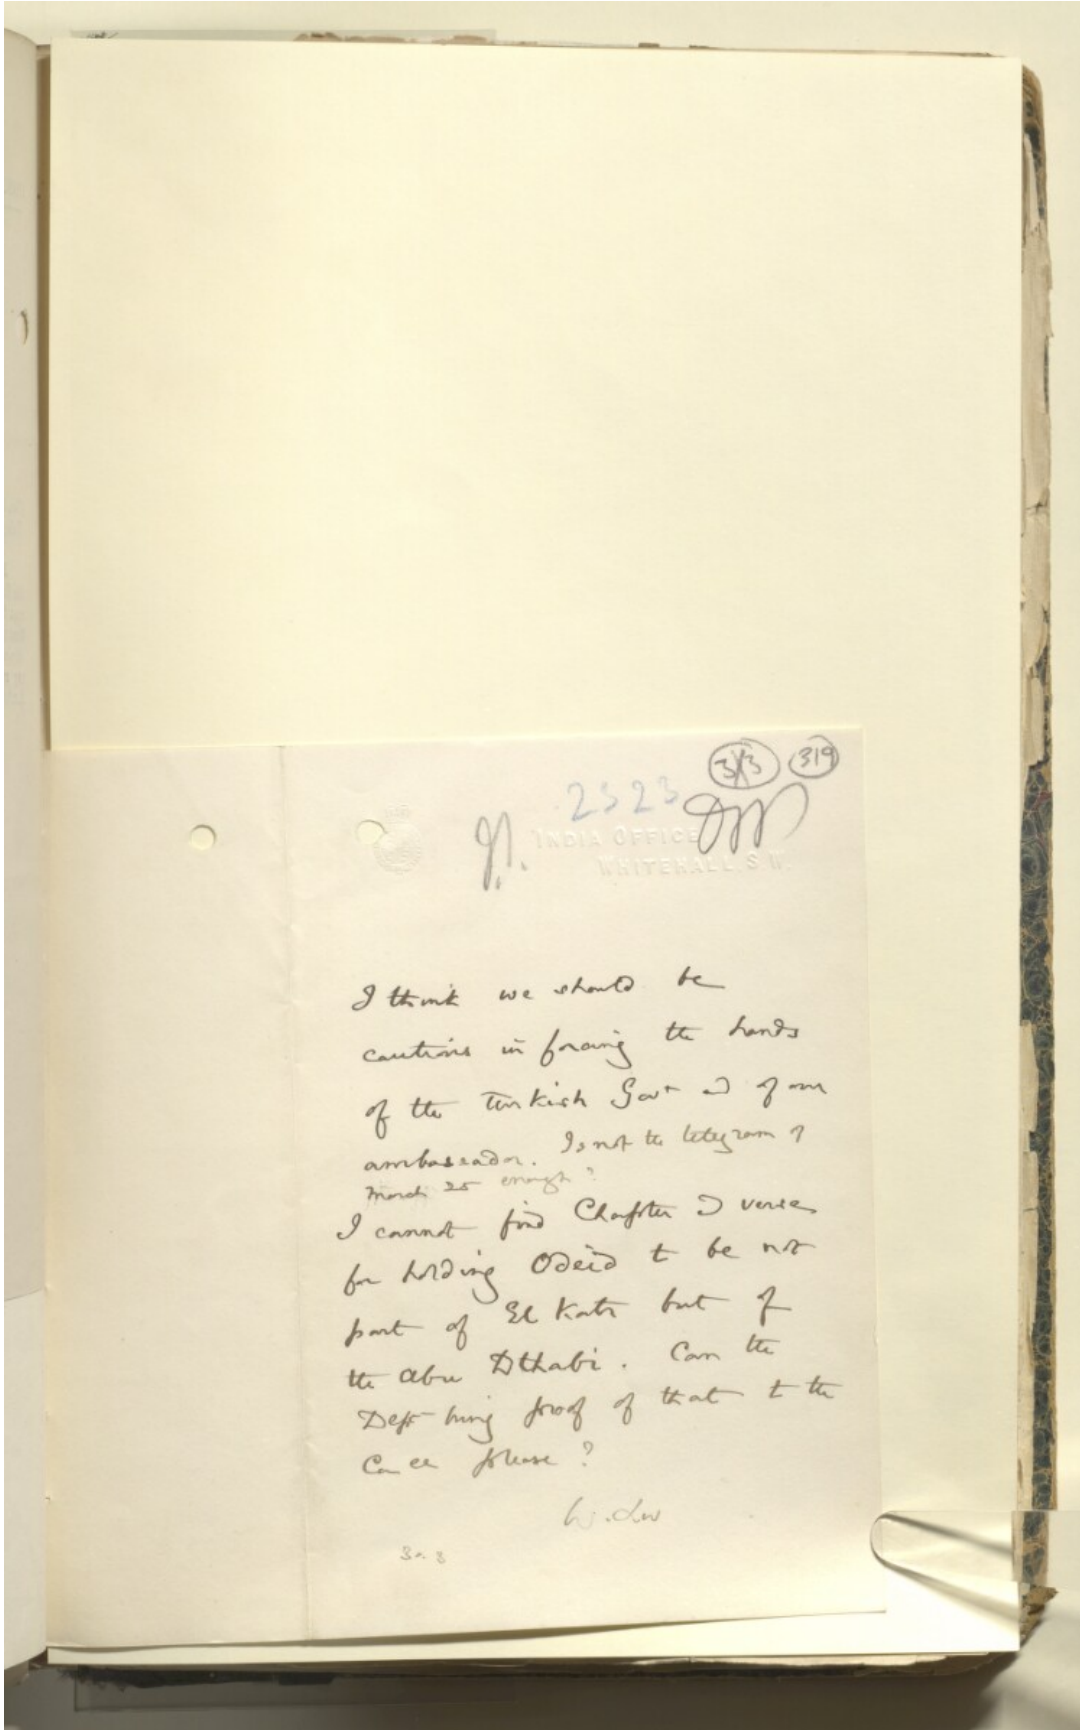 3/3 319
2323
INDIA OFFICE
WHITEHALL, S.W.
I think we should be
cautious in forcing the hands
of the Turkish Govt and of our
ambassador. Is not the telegram of
March 25 enough?
I cannot find Chapter & verse
for holding Odeid to be not
part of El Katr but of
the Abu Dthabi. Can the
Dept bring proof of that to the
Ctee please?
30.3